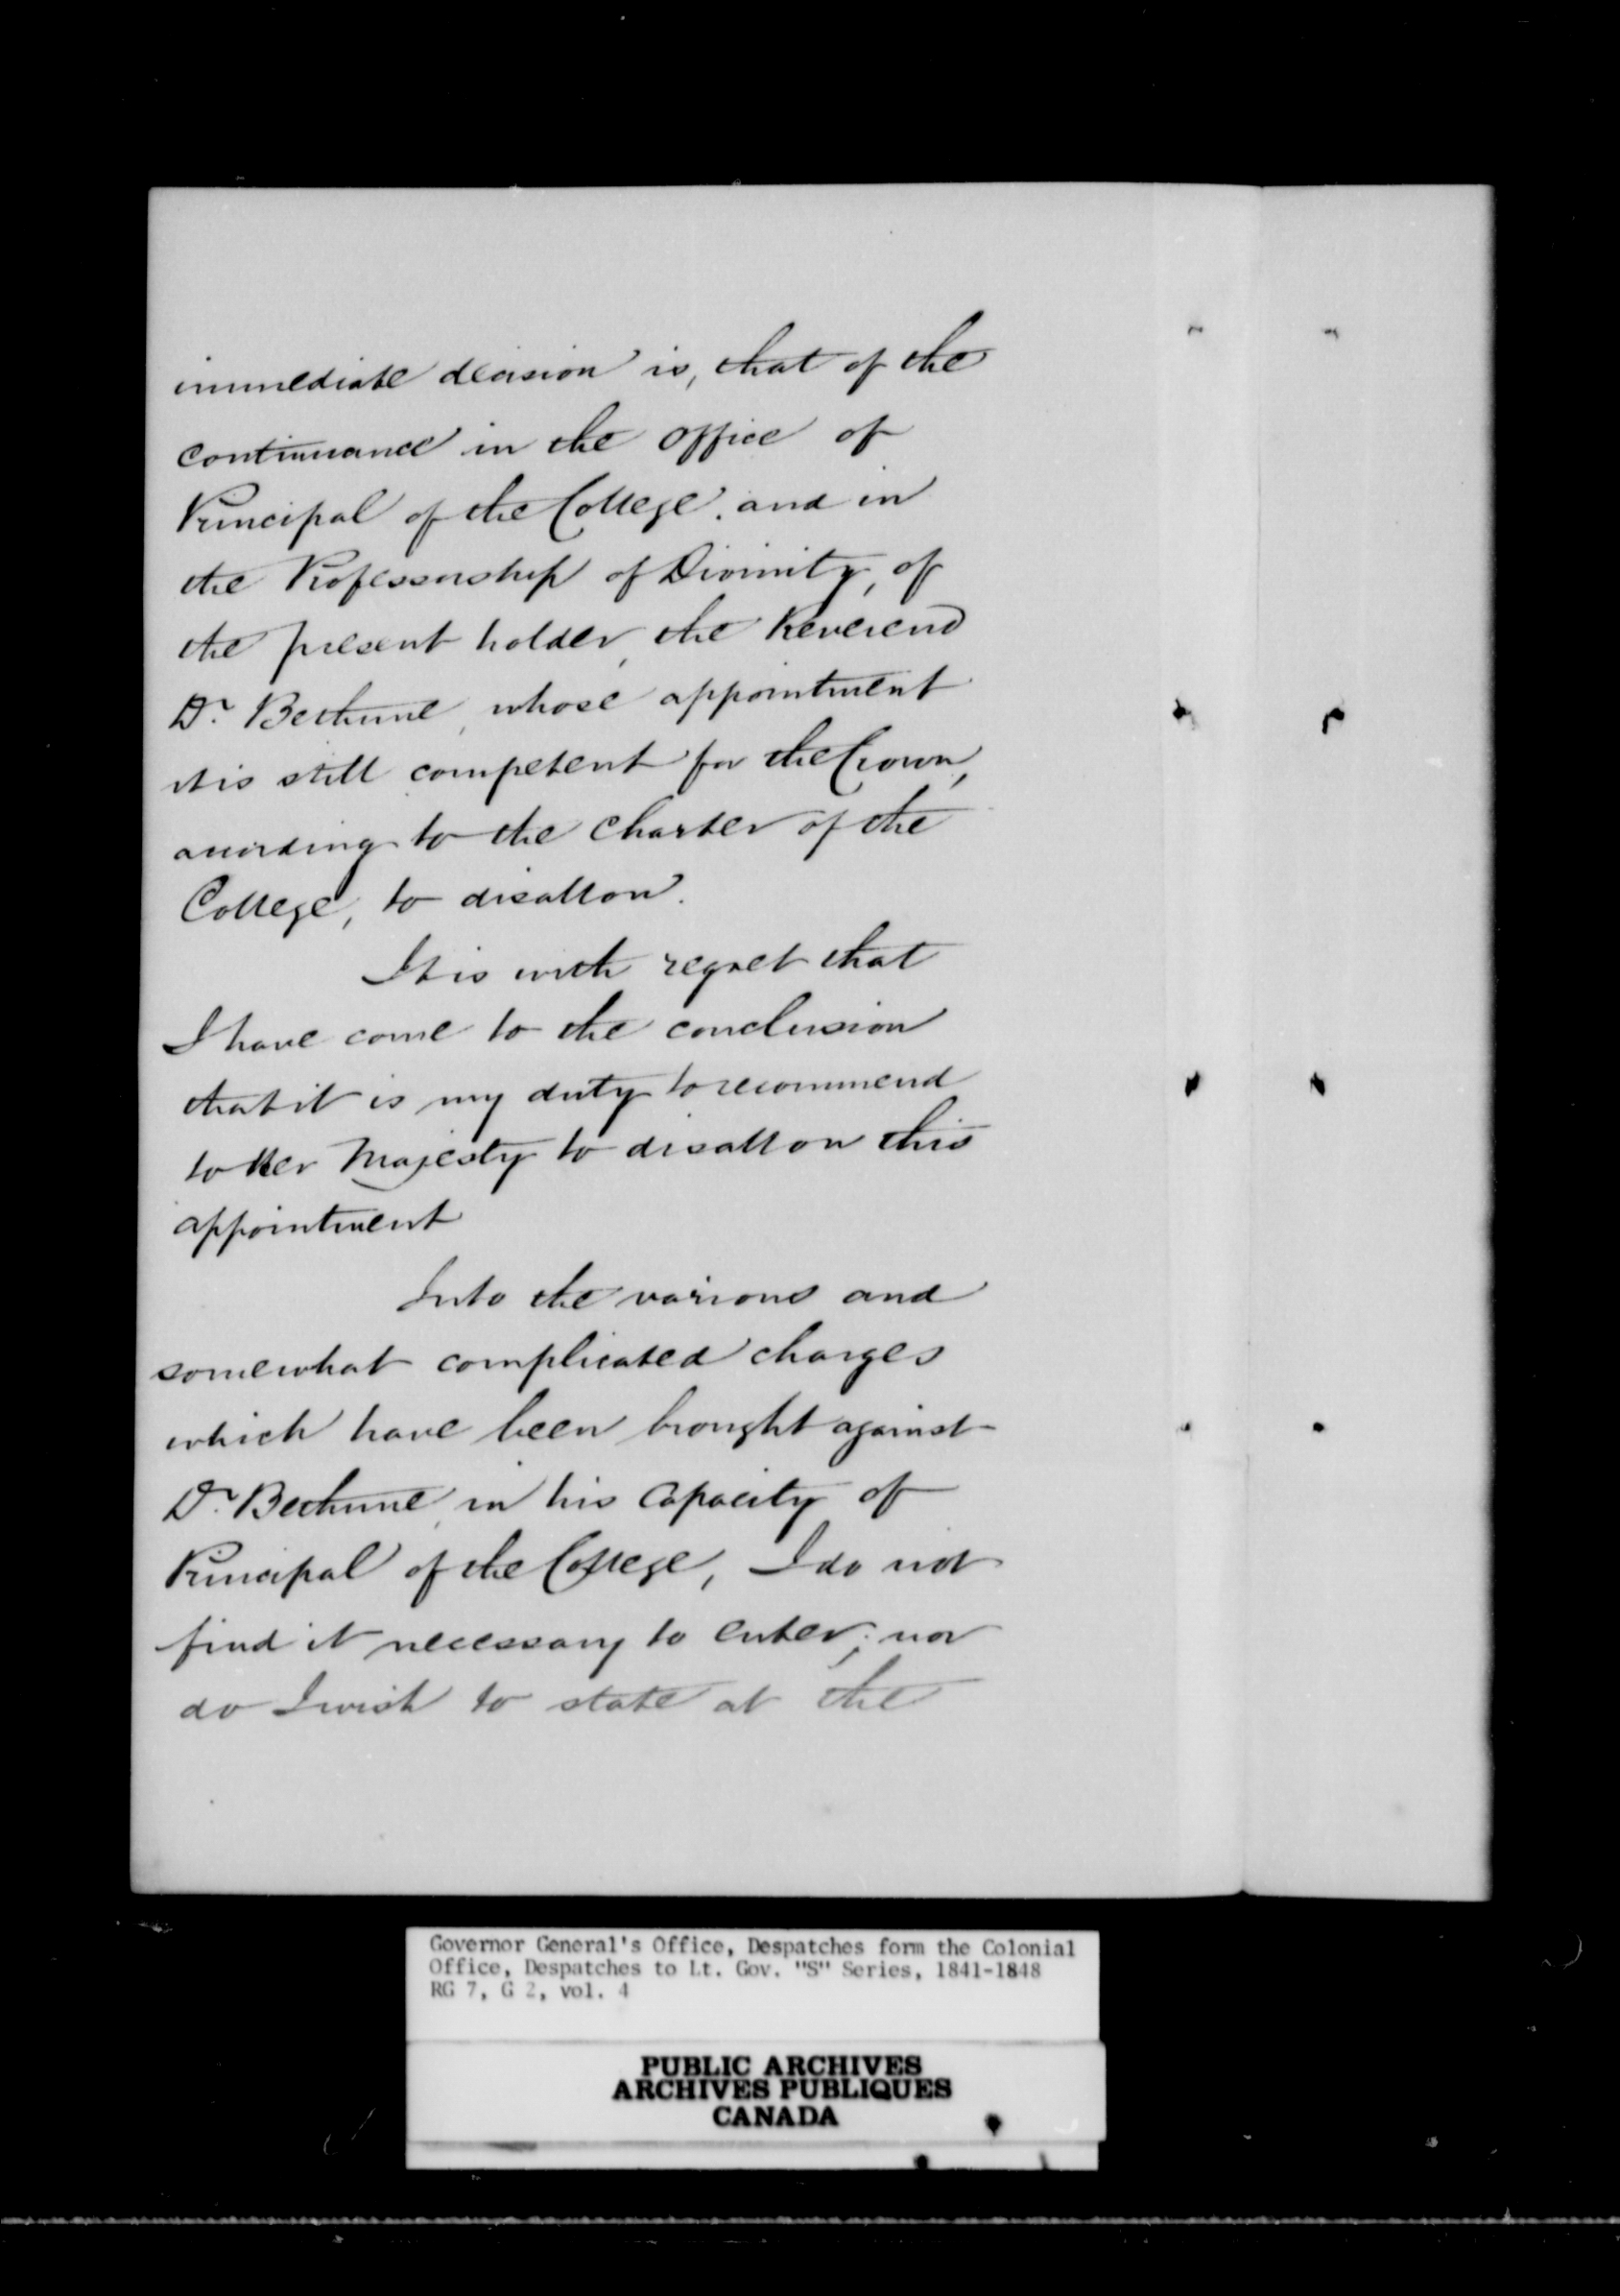 immediate decision is, that of the
continuance in the office of
Principal of the College, and in
the Professorship of Divinity, of
the present holder, the Reverend
Dr. Bethune, whose appointment
it is still competent for the Crown,
according to the Charter of the
College, to disallow.
It is with regret that
I have come to the conclusion
that it is my duty to recommend
to Her Majesty to disallow this
appointment
Into the various and
somewhat complicated charges
which have been brought against
Dr. Bethune, in his capacity of
Principal of the College, I do not
find it necessary to enter; nor
do I wish to state at the
Governor General's Office, Despatches form the Colonial
Office, Despatches to Lt. Gov. "S" Series, 1841-1848
RG 7, G 2, vol. 4
PUBLIC ARCHIVES
ARCHIVES PUBLIQUES
CANADA